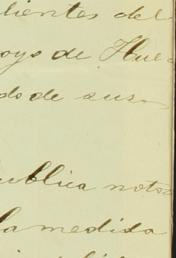 lientes del
oyo de Hue
do de su
ublica noto
la medida